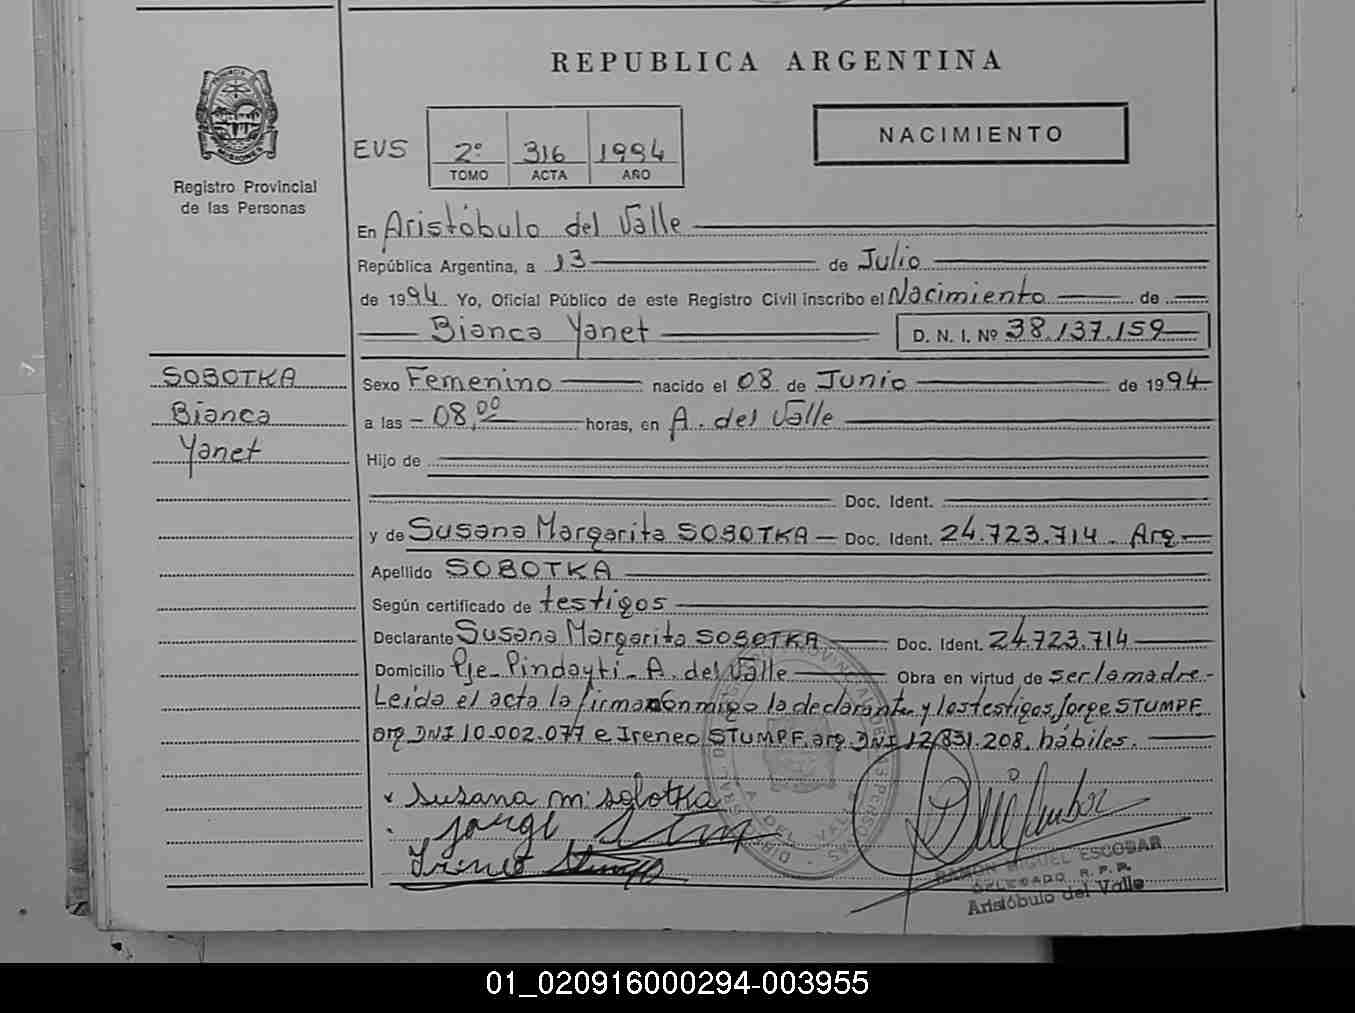 REPUBLICA ARGENTINA
PROVINCIA DE
MISIONES
Registro Provincial
de las Personas
EVS
2º 316 1994
TOMO ACTA AÑO
NACIMIENTO
En Aristóbulo del Valle
República Argentina, a 13 de Julio
de 1994 Yo, Oficial Público de este Registro Civil inscribo el Nacimiento de
Bianca Yanet D. N. I. Nº 38.137.159
SOBOTKA
Bianca
Yanet
Sexo Femenino nacido el 08 de Junio de 1994
a las - 08,00 horas, en A. del Valle
Hijo de
Doc. Ident.
y de Susana Margarita SOBOTKA Doc. Ident. 24.723.714. Arg
Apellido SOBOTKA
Según certificado de testigos
Declarante Susana Margarita SOBOTKA Doc. Ident. 24.723.714
Domicilio Pje. Pindayti - A. del Valle Obra en virtud de ser la madre.-
Leida el acta la firman conmigo la declarante y los testigos Jorge STUMPF
arg DNI 10.002.077 e Ireneo STUMPF, arg DNI 12.831.208, hábiles.
susana m. sobotka
Jorge
Ireneo Stumpf
RAMON MIGUEL ESCOBAR
DELEGADO R. P. P.
Aristóbulo del Valle
01_020916000294-003955